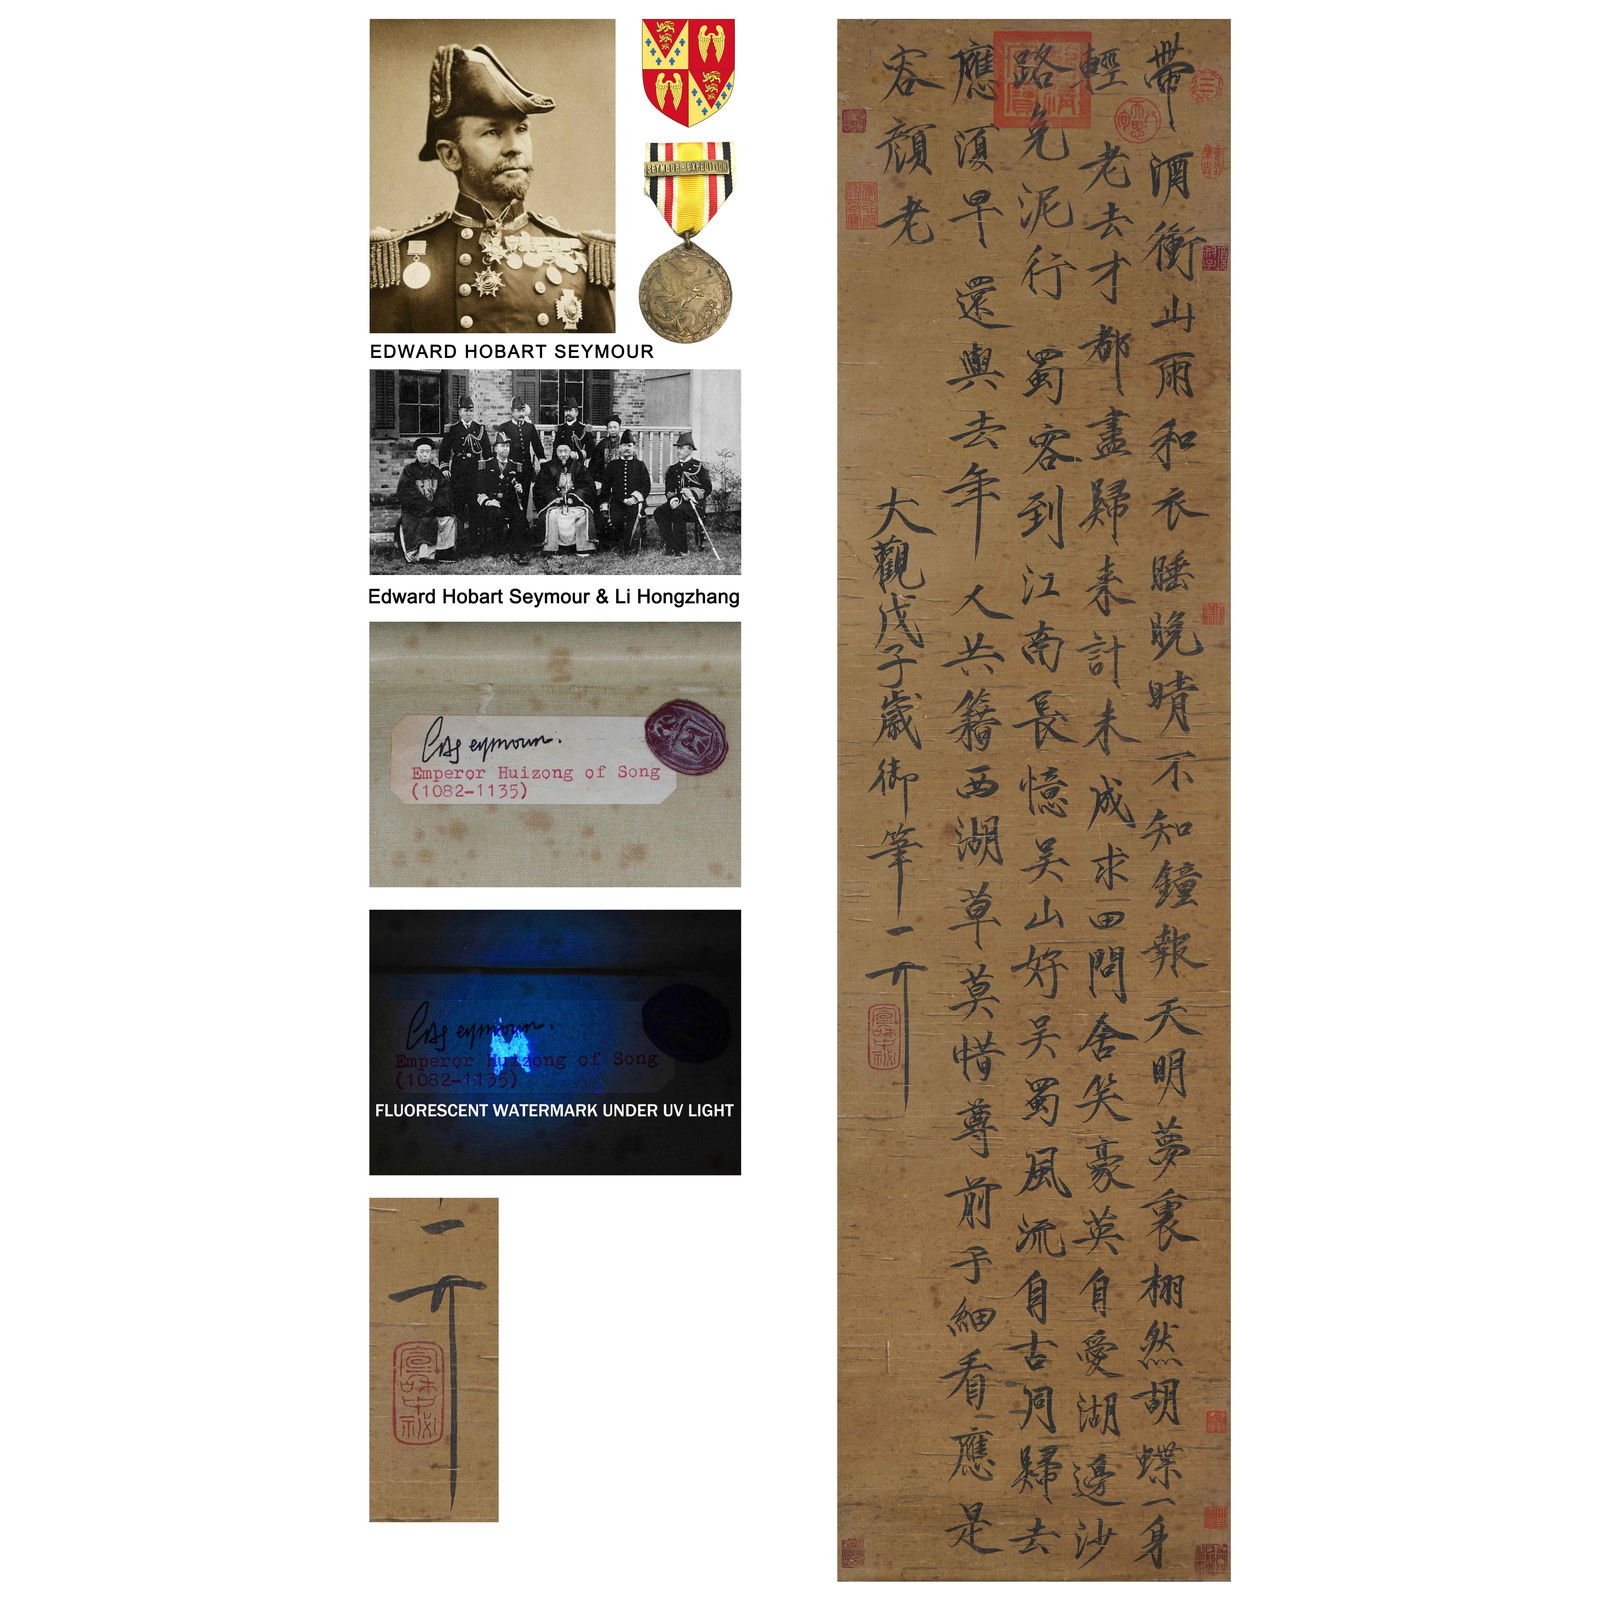 SEYMOUR-EXPEDITION
EDWARD HOBART SEYMOUR
Edward Hobart Seymour & Li Hongzhang
Seymour.
Emperor Huizong of Song
(1082-1135)
Seymour.
Emperor Huizong of Song
(1082-1135)
FLUORESCENT WATERMARK UNDER UV LIGHT
帶酒衝山雨和衣睡晚晴不知鐘報天明夢裏栩然胡蝶一身
輕老去才都盡歸來計未成求田問舍笑豪英自愛湖邊沙
路免泥行蜀客到江南長憶吳山好吳蜀風流自古同歸去
應須早還與去年人共籍西湖草莫惜尊前子細看應是
容顏老
大觀戊子歲御筆